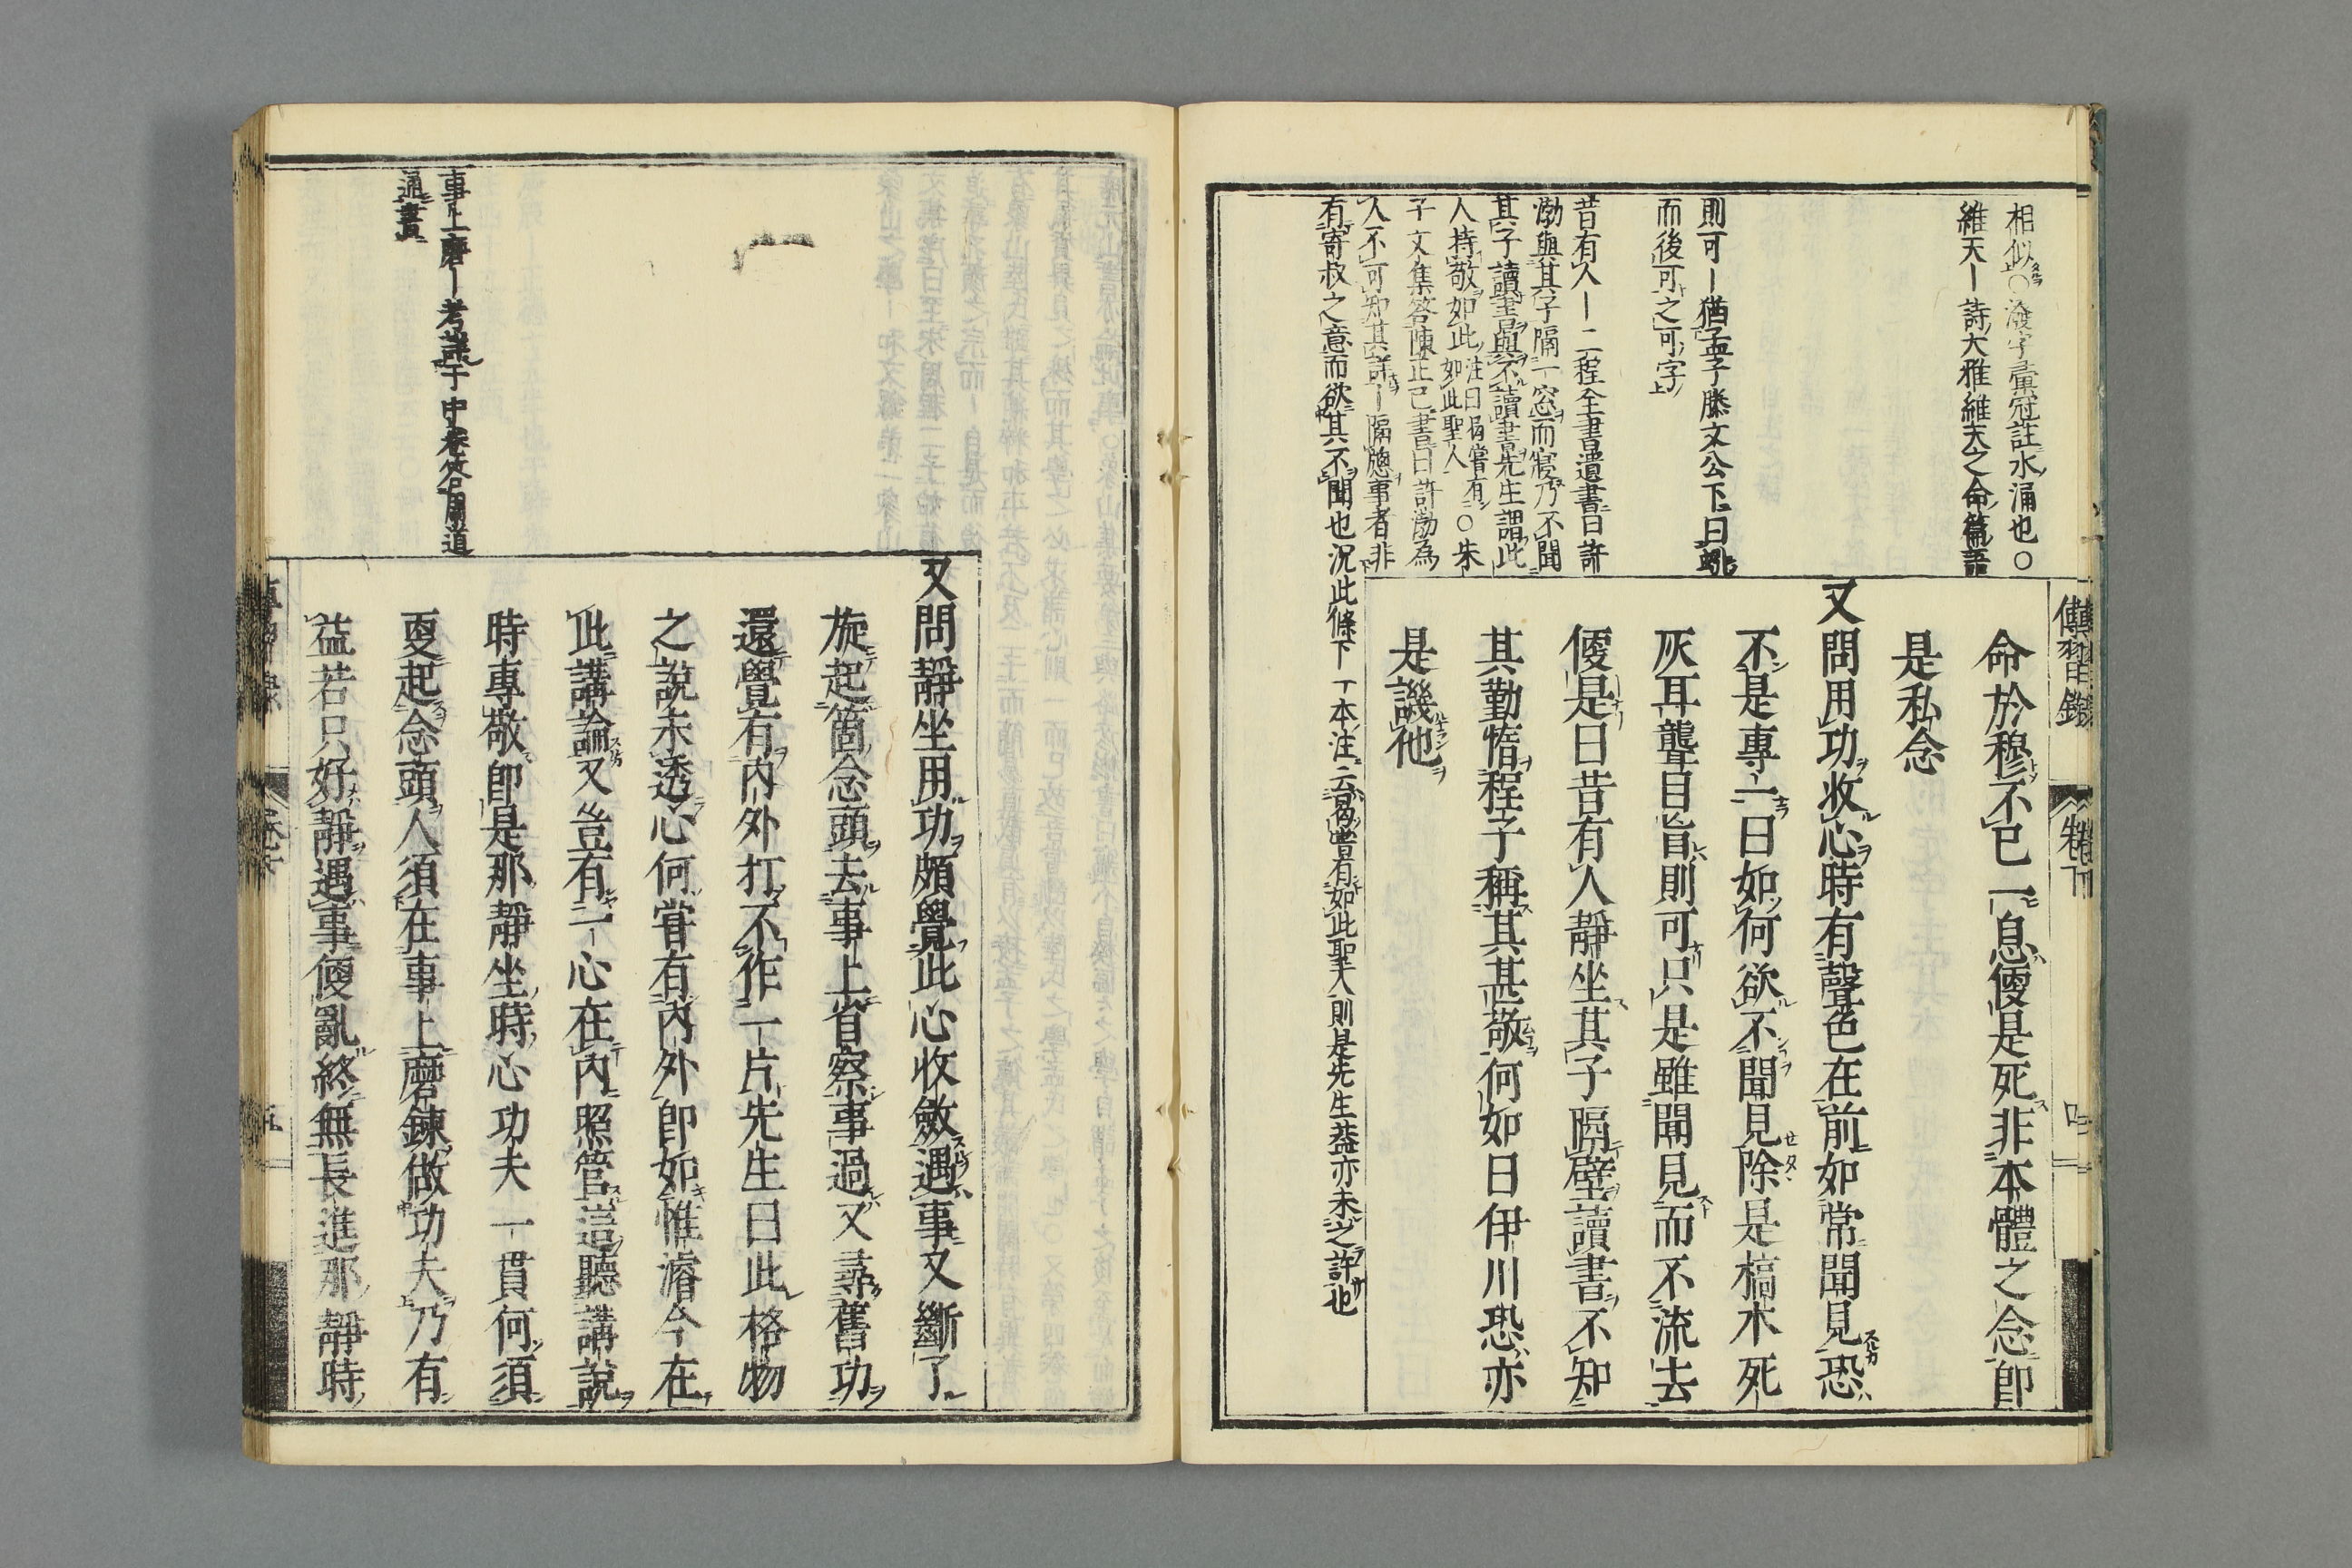 傳習錄
卷下
四
相似○潑字彙冠註水涌也○
維天―詩大雅維天之命篇語
則可―猶孟子滕文公下曰蚓
而後可之可字
昔有人―二程全書遺書曰許
渤與其子隔一窓而寢乃不聞
其子讀書與不讀書先生謂此
人持敬如此注曰曷嘗有如此聖人○朱
子文集答陳正己書曰許渤為
人不可知其詳―隔牕事者非
有寄叔之意而欲其不聞也況此條下一本注云曷嘗有如此聖人則是先生蓋亦未之許也
命於穆不已一息便是死非本體之念卽
是私念
又問用功收心時有聲色在前如常聞見恐
不是專一曰如何欲不聞見除是槁木死
灰耳聾目盲則可只是雖聞見而不流去
便是曰昔有人靜坐其子隔壁讀書不知
其勤惰程子稱其甚敬何如曰伊川恐亦
是譏他
事上磨―考詳于中卷答周道
通書
又問靜坐用功頗覺此心收斂遇事又斷了
旋起箇念頭去事上省察事過又尋舊功
還覺有內外打不作一片先生曰此格物
之說未透心何嘗有內外卽如惟濬今在
此講論又豈有一心在內照管這聽講說
時專敬卽是那靜坐時心功夫一貫何須
更起念頭人須在事上磨鍊做功夫乃有
益若只好靜遇事便亂終無長進那靜時
五